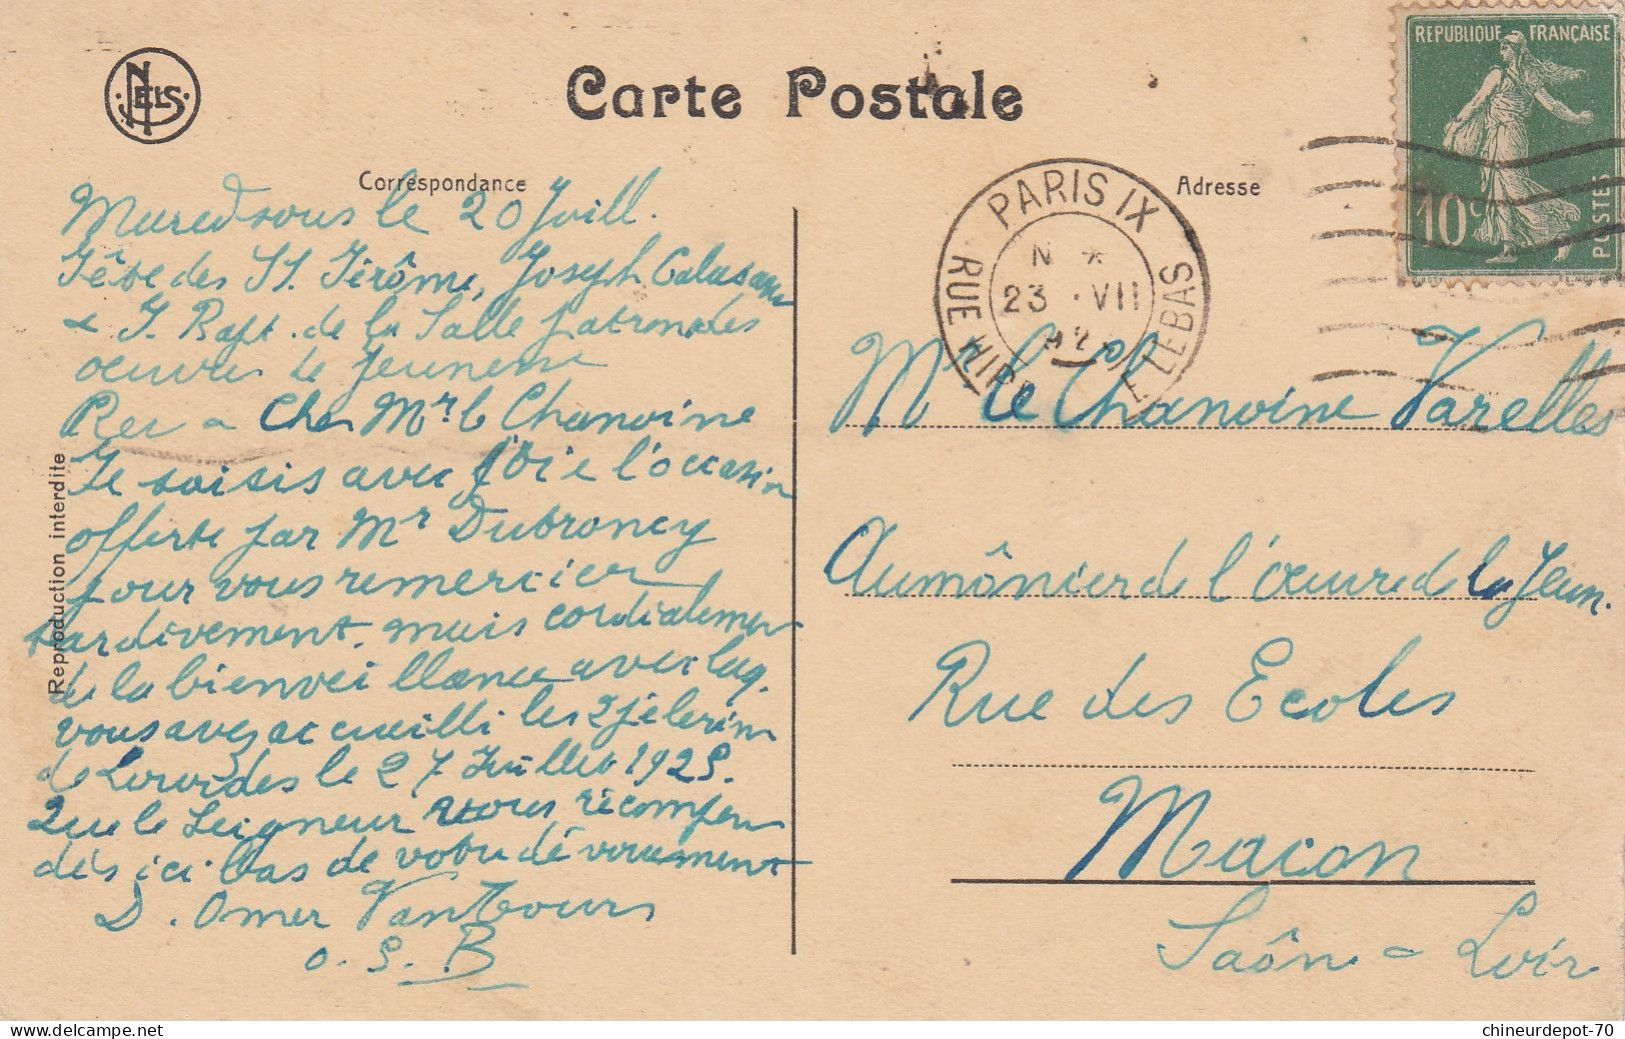 NELS
Carte Postale
Correspondance
Adresse
REPUBLIQUE FRANÇAISE
10c
POSTES
PARIS IX
RUE HIPP TE LEBAS
N *
23 · VII
Maredsous le 20 Juill.
Fête des St. Jérôme, Joseph Calasanz
& J. Bapt. de la Salle patrons des
œuvres de jeunesse
Cher Mr. le Chanoine
Je saisis avec joie l'occasion
offerte par Mr Dubroncy
pour vous remercier
tardivement, mais cordialement
de la bienveillance avec laq.
vous avez accueilli les 2 pèlerins
de Lourdes le 27 Juillet 1925.
Que le Seigneur vous récompense
dès ici-bas de votre dévouement
D. Omer Vantbours
O. S. B
Reproduction interdite
Mr le Chanoine Varelles
Aumônier de l'œuvre de la Jeun.
Rue des Ecoles
Macon
Saône = Loire
chineurdepot-70